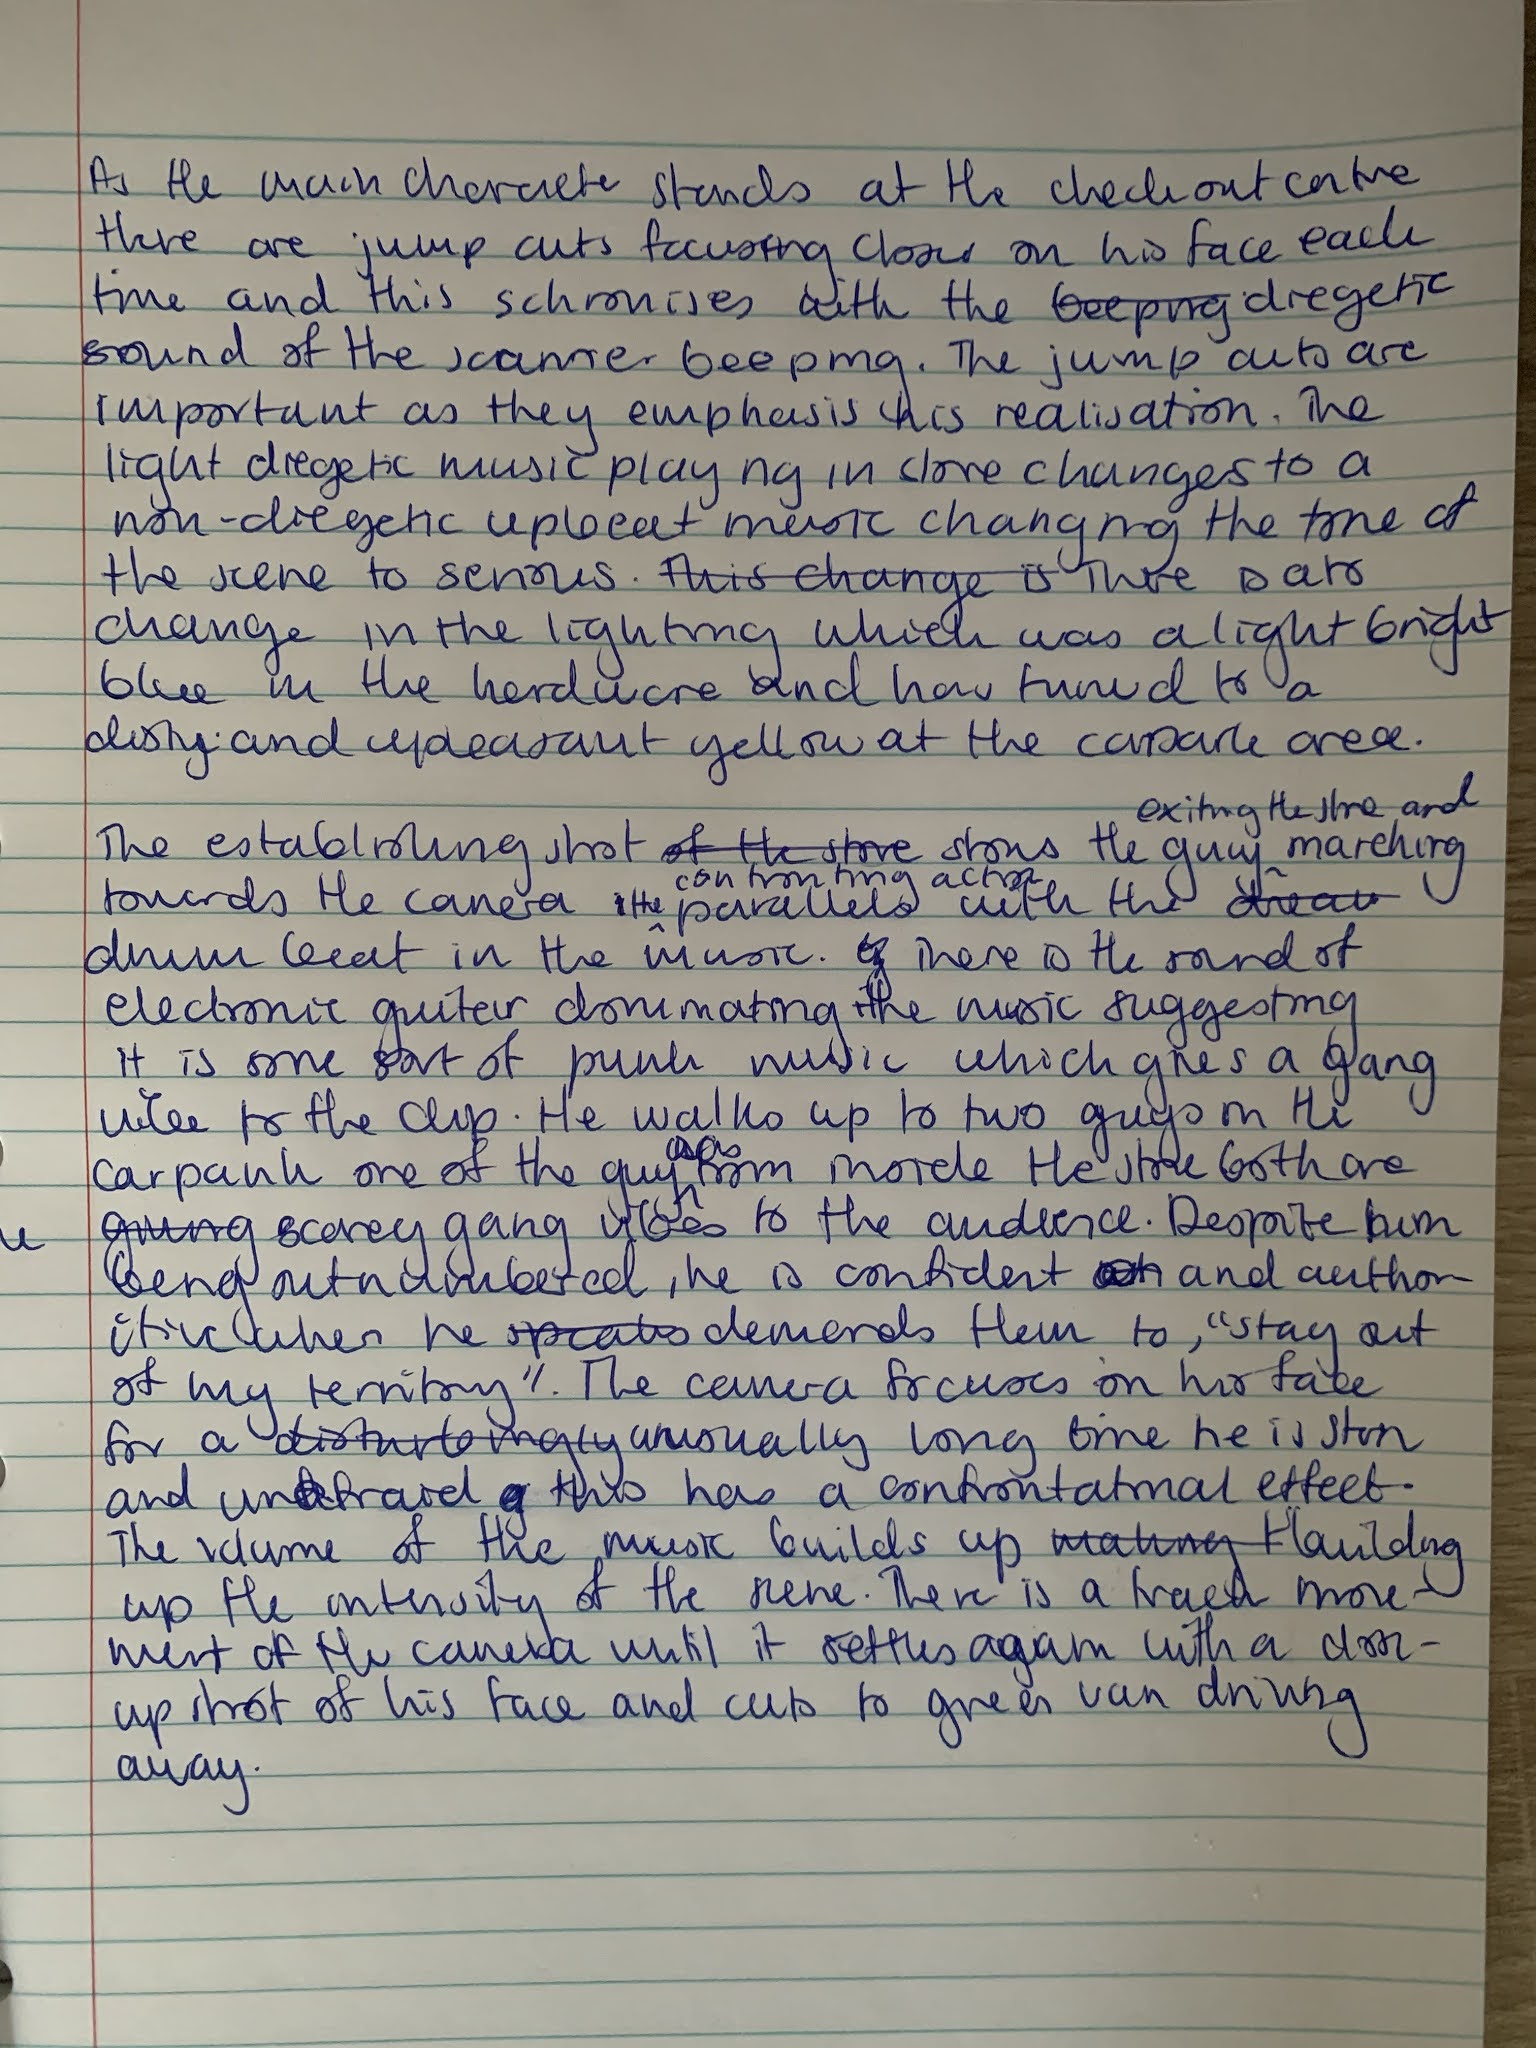 As the main charcrete stands at the checkout centre
there are jump cuts focusing closer on his face each
time and this schronises with the beeping diegetic
sound of the scanner beeping. The jump cuts are
important as they emphasis his realisation. The
light diegetic music playing in store changes to a
non-diegetic upbeat music changing the tone of
the scene to serious. This change is There is also
change in the lighting which was a light bright
blue in the hardware and how turned to a
and unpleasant yellow at the carpark area.
exiting the store and
The establishing shot of the store shows the guy marching
confronting action
towards the camera the parallels with the
drum beat in the music. There is the sound of
electronic guitar dominating the music suggesting
it is some sort of punk music which gives a gang
vibe to the clip. He walks up to two guys in the
carpark one of the guy was from inside the store both are
giving scarey gang vibes to the audience. Despite him
being outnumbered, he is confident and author-
itive when he speaks demends them to, "stay out
of my territory". The camera focuses on his face
for a disturbingly unusually long time he is stern
and unafraid this has a confrontational effect.
The volume of the music builds up making building
up the intensity of the scene. There is a track move-
ment of the camera until it settles again with a close-
up shot of his face and cuts to green van driving
away.